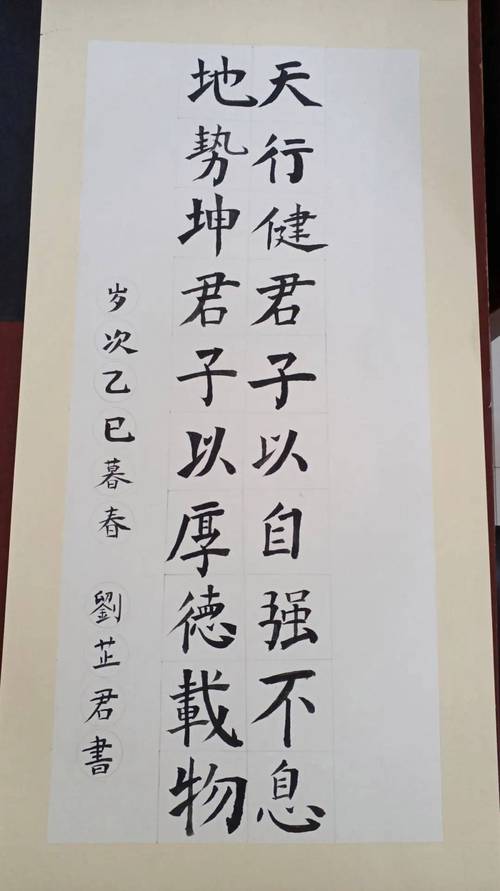 天行健君子以自强不息
地势坤君子以厚德載物
岁次乙巳暮春 劉芷君書